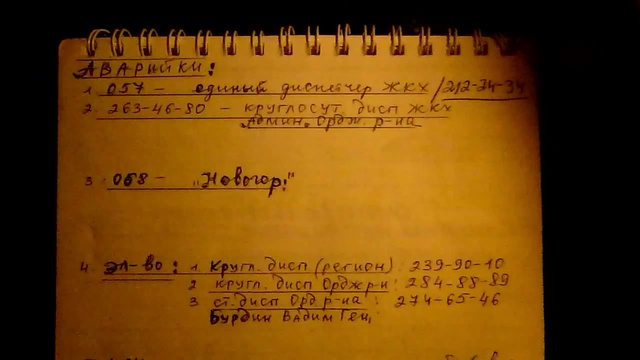 АВАРИЙКИ:
1. 057 - единый диспетчер ЖКХ /212-34-34
2. 263-46-80 - круглосут. дисп ЖКХ
Админ. Ордж. р-на
3. 068 - "Новогор:"
4. эл-во: 1 кругл. дисп (регион) 239-90-10
2 кругл. дисп Ордж р-н: 284-88-89
3 ст. дисп Орд р-на: 274-65-46
Бурдин Вадим Ген.